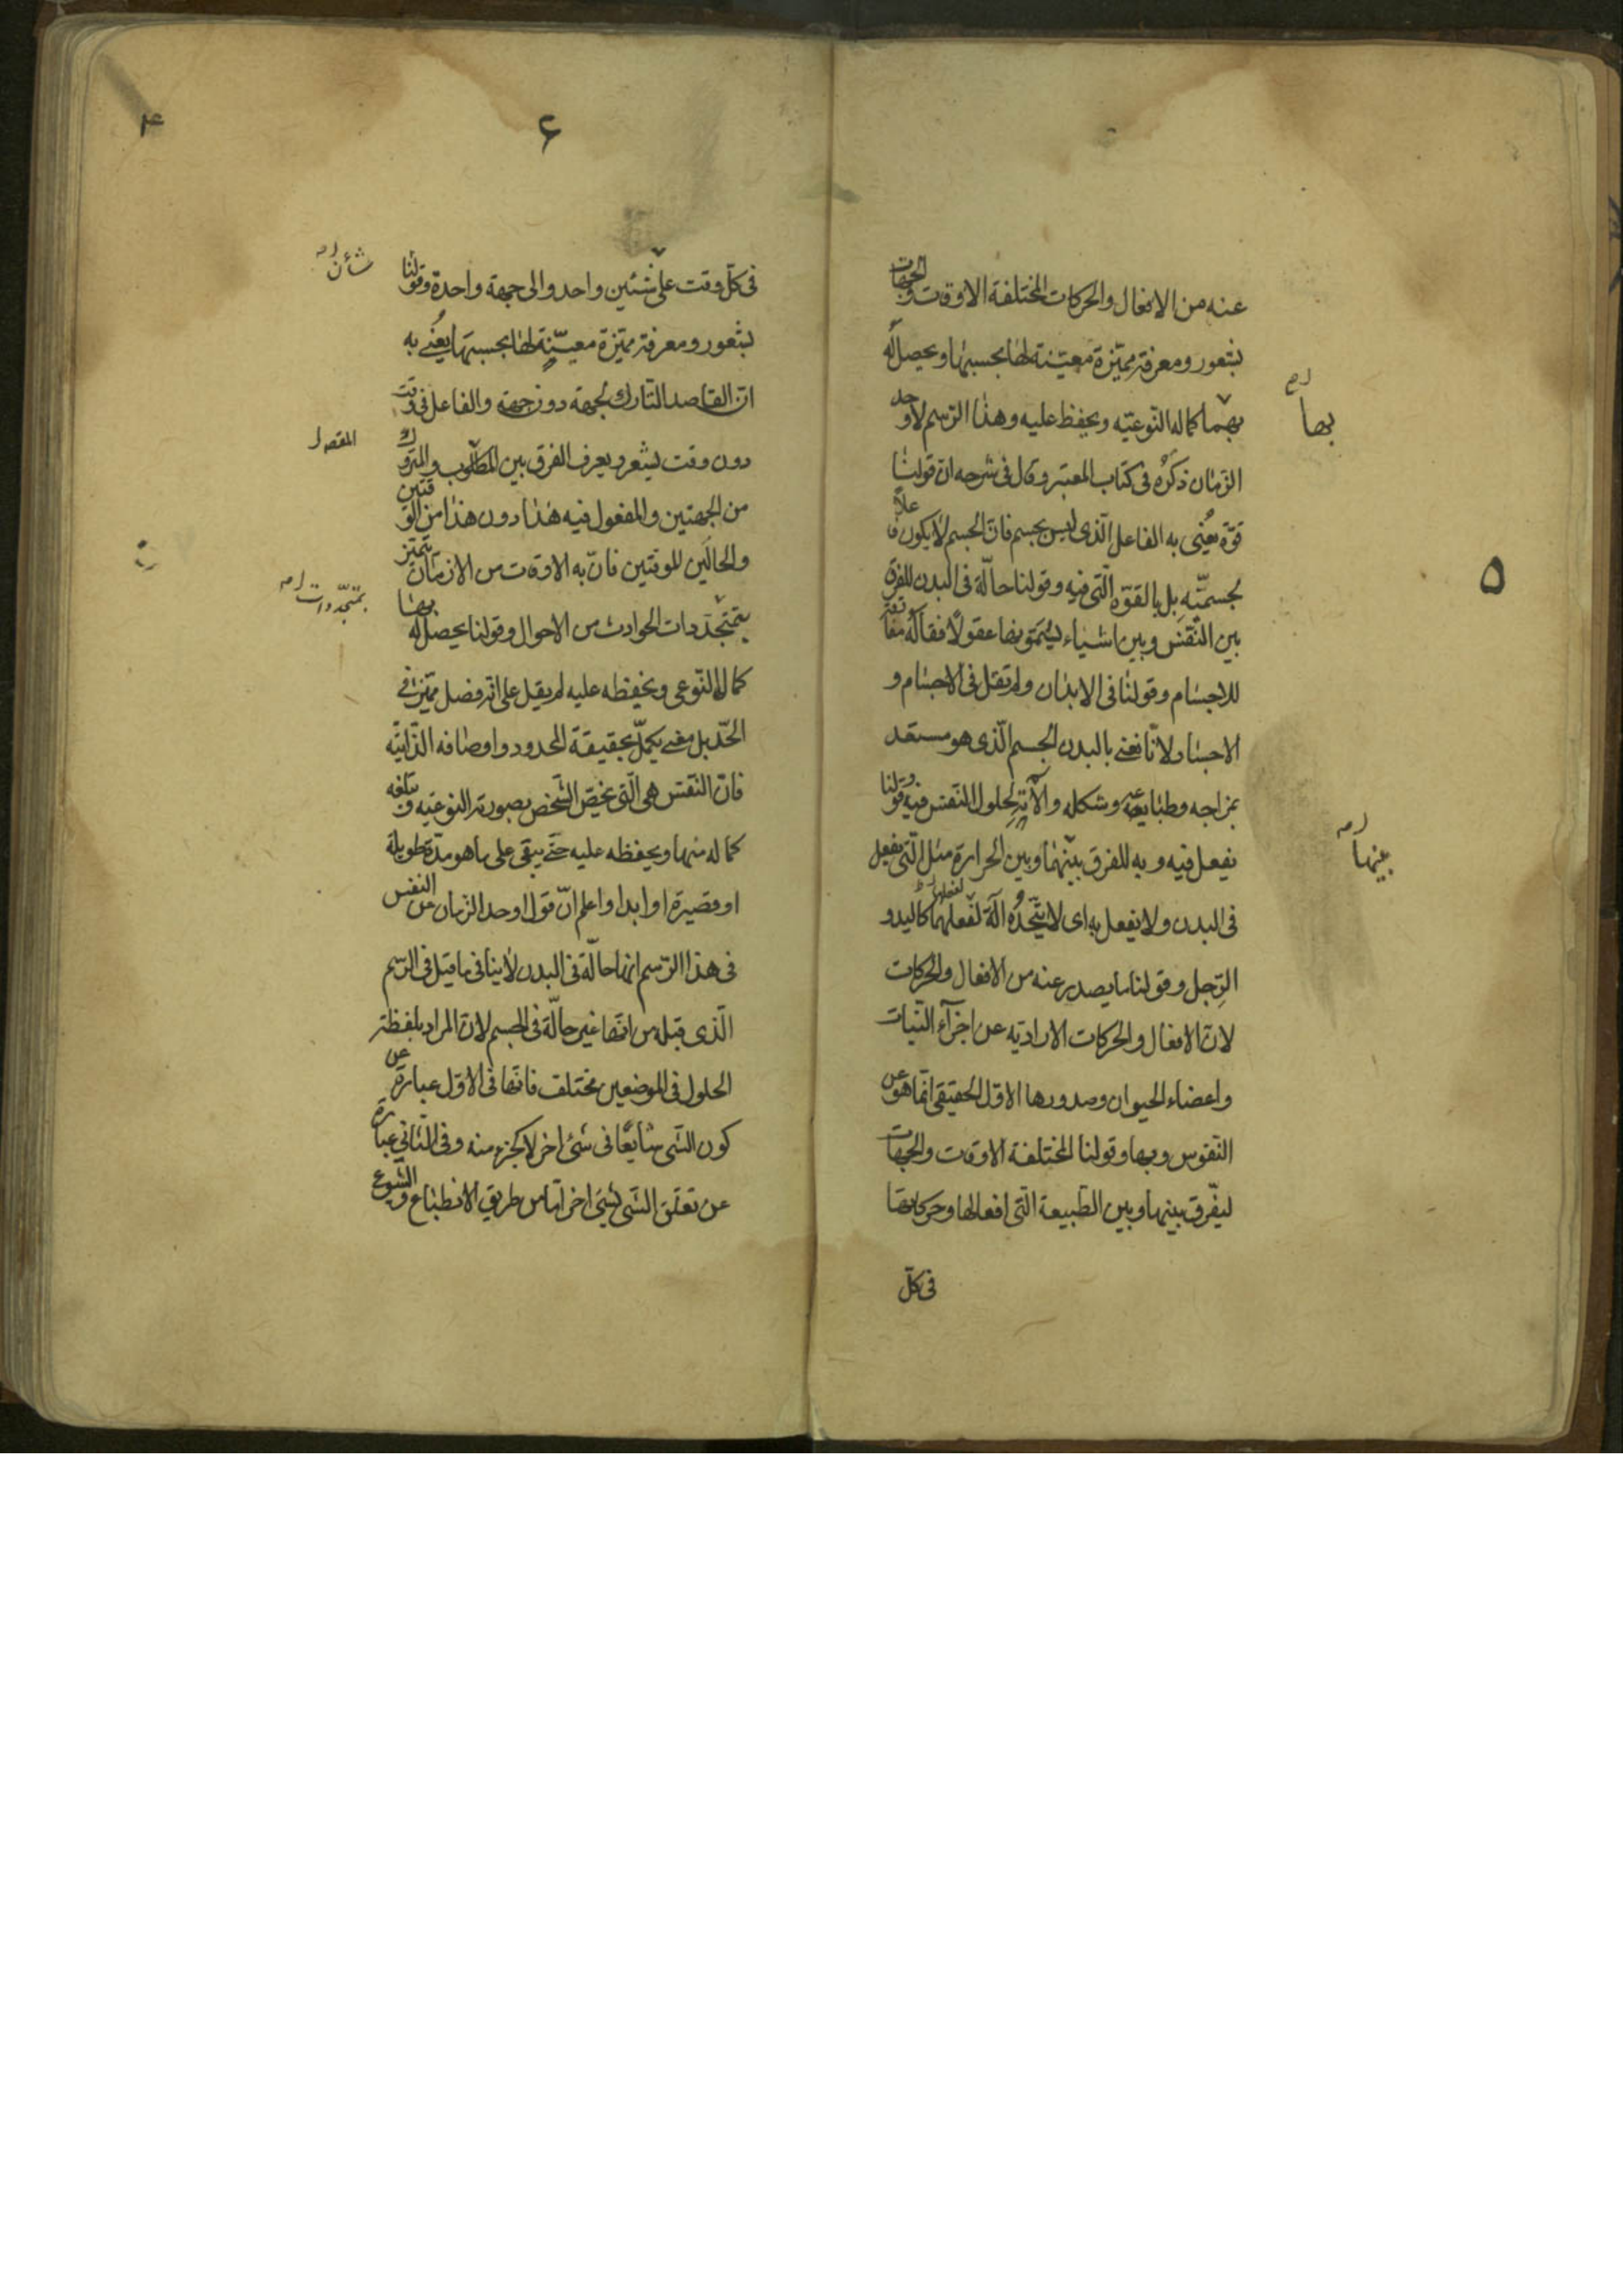 عنه من الافعال والحركات المختلفة الاوقات والجهات
بشعور ومعرفة مميّزة معيّنة لها بحسبها ويحصل له
بهما كماله النّوعيّه ويحفظ عليه وهذا الرّسم لاوحد
الزمان ذكره فى كتاب المعتبر وقال فى شرحه انّ قولنا
قوّة يُعنى به الفاعل الّذى ليس بجسم فانّ الجسم لا يكون فاعلاً
بجسميّته بل بالقوّة الّتى فيه وقولنا حالّة فى البدن للفرق
بين النّفس وبين اشياء يسمّونها عقولاً فقاله مفارقة
للاجسام وقولنا فى الابدان ولم نقل فى الاجسام و
الاجساد لانّا نعنى بالبدن الجسم الّذى هو مستعد
بمزاجه وطبايعه وشكله وآلاته لحلول النّفس فيه وقولنا
يفعل فيه وبه للفرق بينهما وبين الحرارة مثل الّتى يفعل
فى البدن ولا يفعل به اى لا يتّخذه آلة لفعلهما كاليد و
الرّجل وقولنا ما يصدر عنه من الافعال والحركات
لانّ الافعال والحركات الاراديّه عن اجزآء النّبات
واعضاء الحيوان وصدورها الاوّل الحقيقى انّما هو عن
النّفوس وبها وقولنا المختلفة الاوقات والجهات
ليفرّق بينها وبين الطّبيعة الّتى افعالها وحركاتها
فى كلّ
بها
عينها
۵
۶
۴
فى كلّ وقت على شئين واحد والى جهة واحدة وقولنا
بشعور ومعرفة مميّزة معيّنة لها بحسبها يُعنى به
انّ القاصد التارك لجهة دون جهة والفاعل فى وقت
دون وقت يشعر ويعرف الفرق بين المطلوب والمتروك
من الجهتين والمفعول فيه هذا دون هذا من الوقتين
والحالين للوقتين فانّ به الاوقات من الازمان يتميّز
بمتجدّدات الحوادث من الاحوال وقولنا يحصل له بها
كماله النّوعى ويحفظه عليه لم يقل على انّه فصل مميّز فى
الحّد بل معنى يكمل بحقيقة المحدود واوصافه الذّاتيّه
فانّ النّفس هى الّتى يخصّ الشّخص بصورته النوعيّه وتبلغه
كماله منها ويحفظه عليه حتّى يبقى على ما هو مدّة طويلة
او قصيرة او ابدا واعلم انّ قول اوحد الزمان عن النفس
فى هذا الرّسم انها حالّة فى البدن لا ينافى ما قيل فى الرّسم
الّذى قبله من انّها غير حالّة فى الجسم لانّ المراد بلفظة
الحلول فى الموضعين مختلف فانّها فى الاوّل عبارة عن
كون الشّى شايعًا فى شئ اخر لا كجزء منه وفى الثانى عبارة
عن تعلّق الشّى بشئ اخر امّا من طريق الانطباع والشيوع
شأن
بمتجدّدات